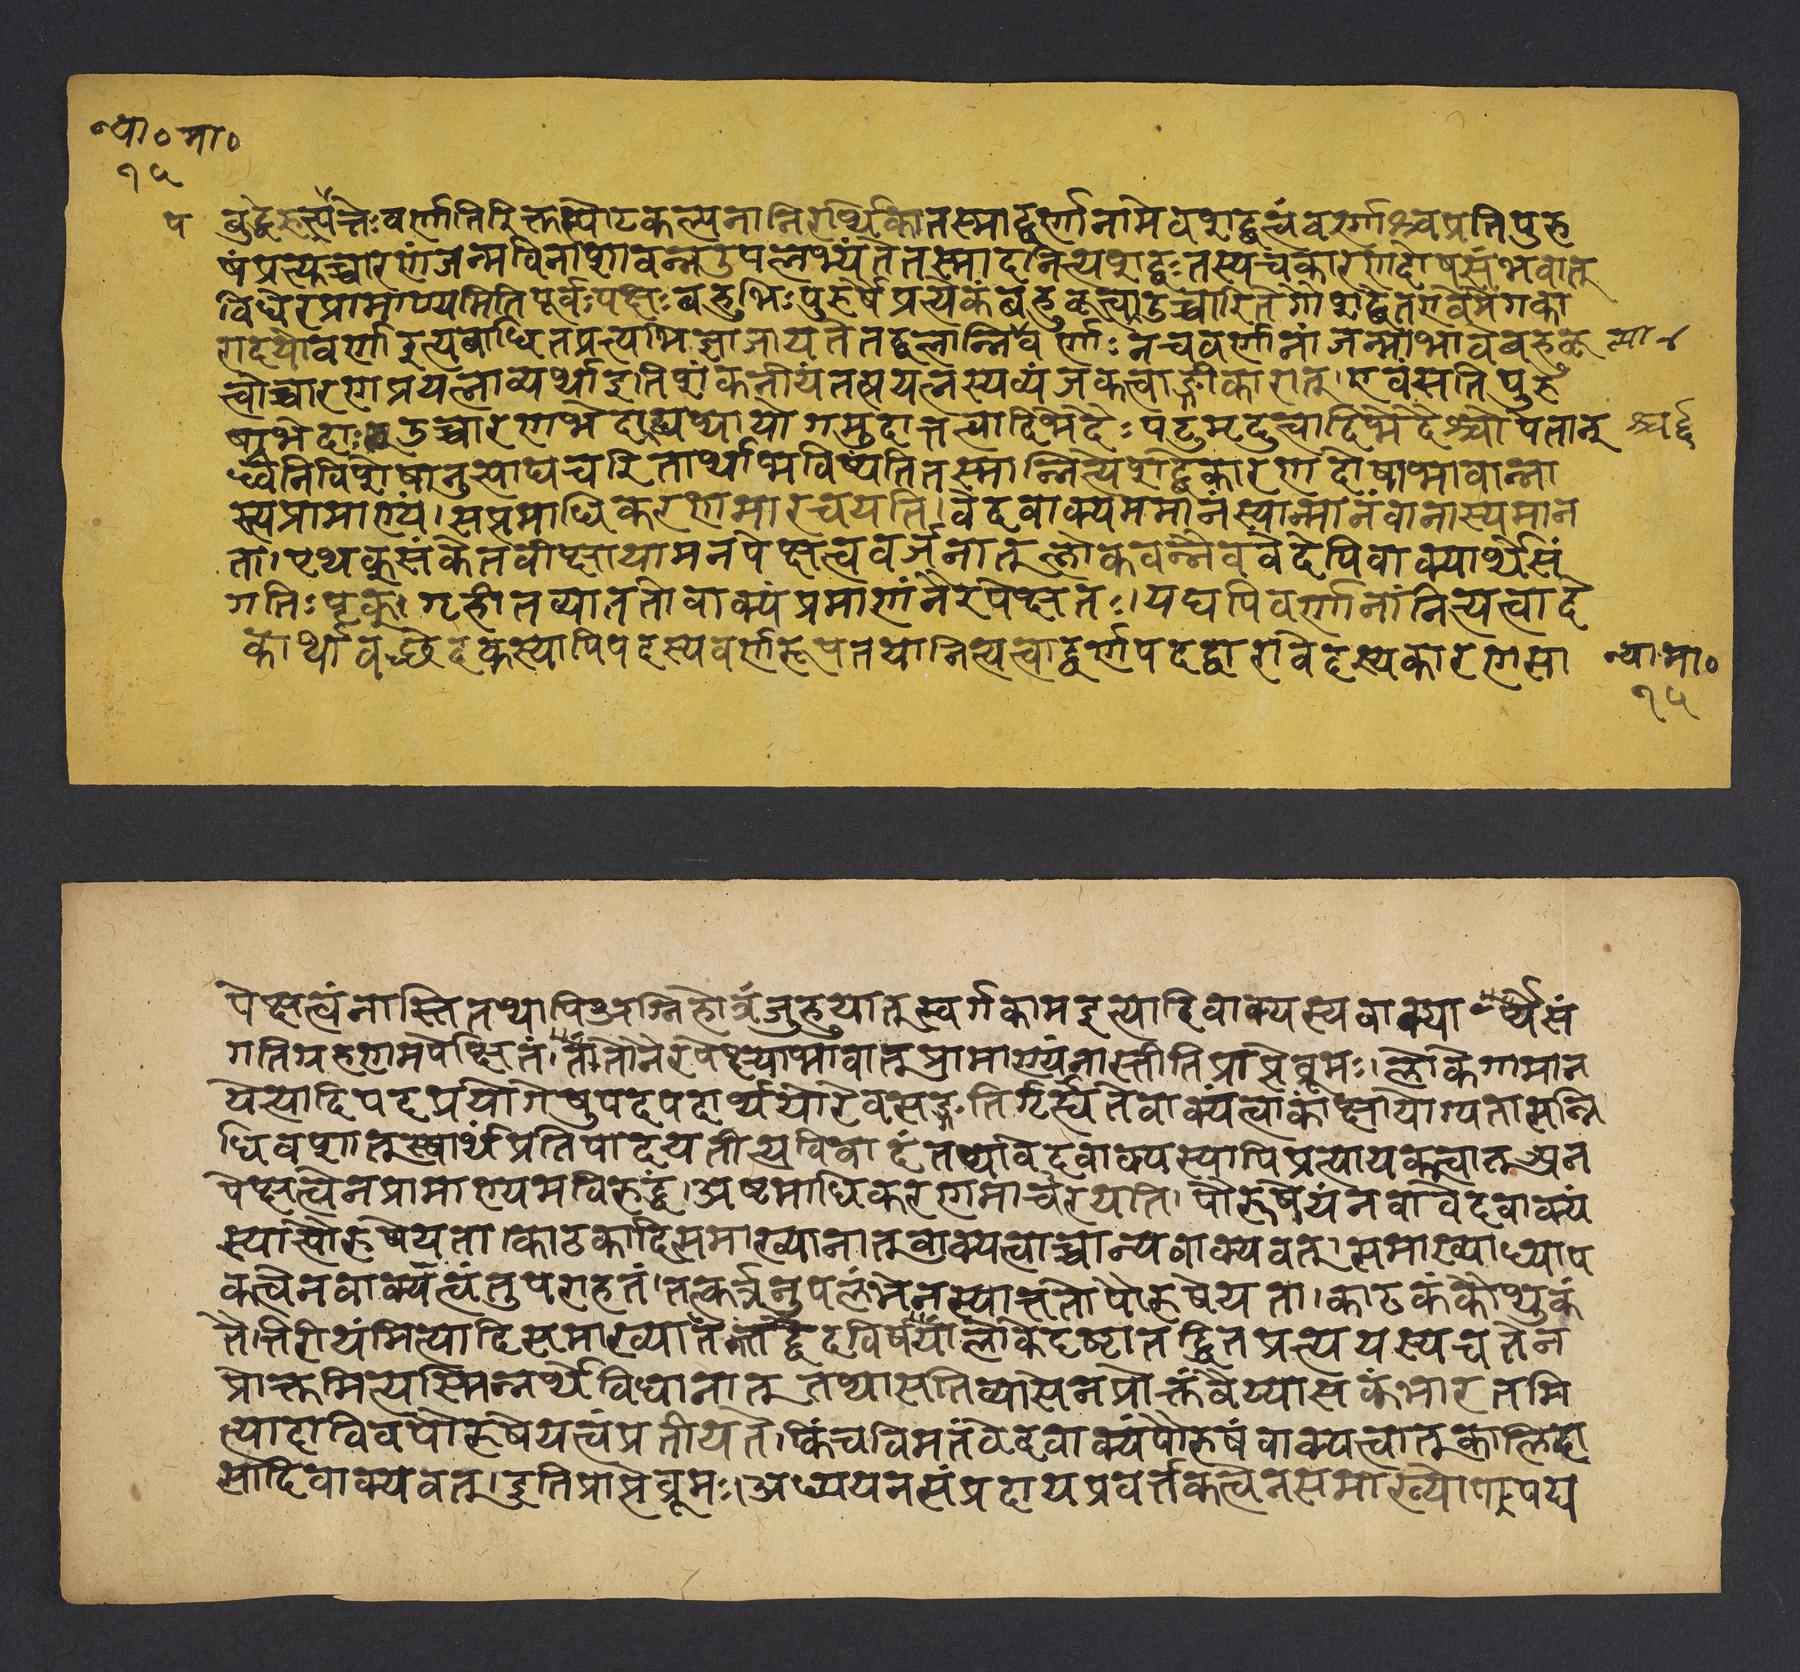 न्या० मा०
१५
प बुद्धेरुत्पत्तेः वर्णातिरिक्तस्फोटकल्पनानिरर्थिका तस्माद्वर्णानामेव शब्दत्वं वर्णाश्च प्रतिपुरु
षं प्रत्युच्चारणं जन्मविनाशावन्त उपलभ्यंते तस्मादनित्यशब्दः तस्य च कारणदोषसंभवात्
विधेरप्रामाण्यमिति पूर्वः पक्षः बहुभिः पुरुषै प्रत्येकं बहुकृत्व उच्चारिते गोशब्दे त एवेमे गका
रादयो वर्णा इत्यबाधितप्रत्यभिज्ञा जायते तद्बलान्नित्या वर्णाः न च वर्णानां जन्माभावे बहुकृ त्या ४
त्वोच्चारणप्रयत्नो व्यर्थ इति शंकनीयं तत्प्रयत्नस्य व्यंजकत्वाङ्गीकारात् । एवं सति पुरु
षभेदाः उच्चारणभेदाद्युपाधयो गमुदात्तत्वादिभेदैः पटुमृदुत्वादिभेदैश्चोपेतान् श्चर्द्द
ध्वनिविशेषाननुरुध्य चरितार्था भविष्यंति तस्मान्नित्यशब्दे कारणदोषाभावान्ना
स्त्यप्रामाण्यं । सप्तमाधिकरणमारचयति । वेदवाक्यममानं स्यान्मानं वा नास्त्यमान
ता । पृथक् संकेतवीक्षायामनपेक्षत्ववर्जनात् लोकवन्नैव वेदेपि वाक्यार्थे सं
गतिः पृथक् । गृहीतव्या ततो वाक्यं प्रमाणं नैरपेक्षतः । यद्यपि वर्णानां नित्यत्वादे
कार्थावच्छेदकस्यापि पदस्य वर्णरूपतया नित्यत्वाद्वर्णपदद्वारा वेदस्य कारणसा न्या० मा०
१५
पेक्षत्वं नास्ति तथापि अग्निहोत्रं जुहुयात् स्वर्गकाम इत्यादिवाक्यस्य वाक्यार्थे सं
गतिग्रहणमपेक्षितं । ततो नैरपेक्ष्याभावात् प्रामाण्यं नास्तीति प्राप्ते ब्रूमः । लोके गामान
येत्यादिपदप्रयोगेषु पदपदार्थयोरेव सङ्गतिर्गृह्यते वाक्यं त्वाकांक्षायोग्यतासन्नि
धिवशात् स्वार्थं प्रतिपादयतीत्यविवादं तथा वेदवाक्यस्यापि प्रत्यायकत्वात् अन
पेक्षत्वेन प्रामाण्यमविरुद्धं । अष्टमाधिकरणमारचयति । पौरुषेयं न वा वेदवाक्यं
स्यात्पौरुषेयता । काठकादिसमाख्यानात् वाक्यत्वाच्चान्यवाक्यवत् । समाख्याध्याप
कत्वेन वाक्यत्वं तु पराहतं । तत्कर्त्रनुपलंभेन स्यात्ततोपौरुषेयता । काठकं कौथुकं
तैत्तिरीयंमित्यादिसमाख्यातं तत्तद्वेदविषया लोके दृष्टा तद्धितप्रत्ययस्य च तेन
प्रोक्तमित्यस्मिन्नर्थे विधानात् तथा सति व्यासेन प्रोक्तं वैय्यासकं भारतमि
त्यादाविव पौरुषेयत्वं प्रतीयते । किंच विमतं वेदवाक्यं पौरुषं वाक्यत्वात् कालिदा
सादिवाक्यवत् । इति प्राप्ते ब्रूमः । अध्ययनसंप्रदायप्रवर्तकत्वेन समाख्योपपद्य